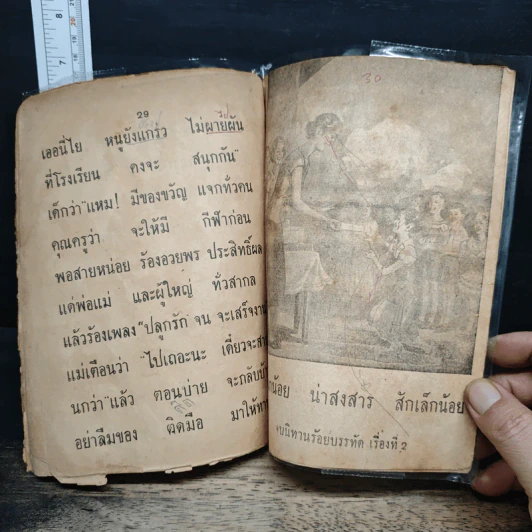 29
เออนี่ไย หนูยังแกร่ว ไม่ผายผัน
ที่โรงเรียน คงจะ สนุกกัน"
เด็กว่า"แหม! มีของขวัญ แจกทั่วคน
คุณครูว่า จะให้มี กีฬาก่อน
พอสายหน่อย ร้องอวยพร ประสิทธิ์ผล
แด่พ่อแม่ และผู้ใหญ่ ทั่วสากล
แล้วร้องเพลง "ปลูกรัก" จน จะเสร็จงาน
แม่เตือนว่า "ไปเถอะนะ เดี๋ยวจะสา
นกว่า"แล้ว ตอนบ่าย จะกลับบ้
อย่าลืมของ ติดมือ มาให้ทา
30
น้อย น่าสงสาร สักเล็กน้อย
จบนิทานร้อยบรรทัด เรื่องที่ 2